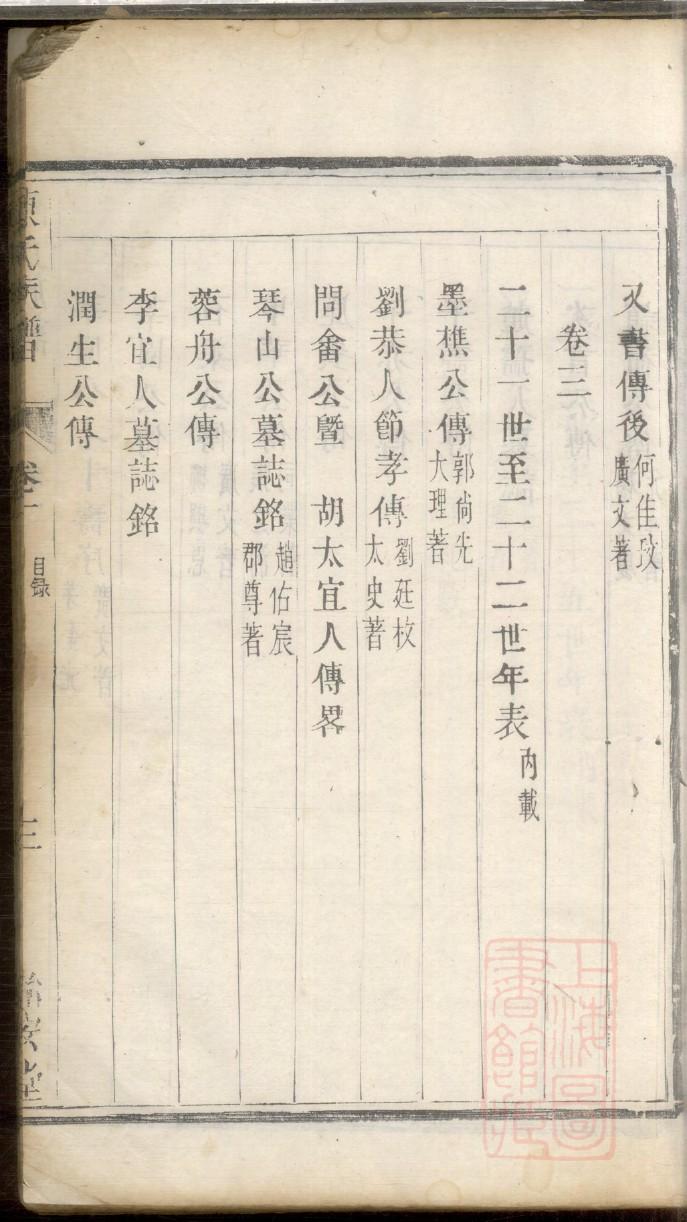 又書傳後何佳玫廣文著
卷三
二十一世至二十二世年表內載
墨樵公傳郭尙先大理著
劉恭人節孝傳劉廷枚太史著
問畬公暨 胡太宜人傳畧
琴山公墓誌銘趙佑宸郡尊著
蓉舟公傳
李宜人墓誌銘
潤生公傳
氏族譜
卷一
目錄
三
上海圖書館藏